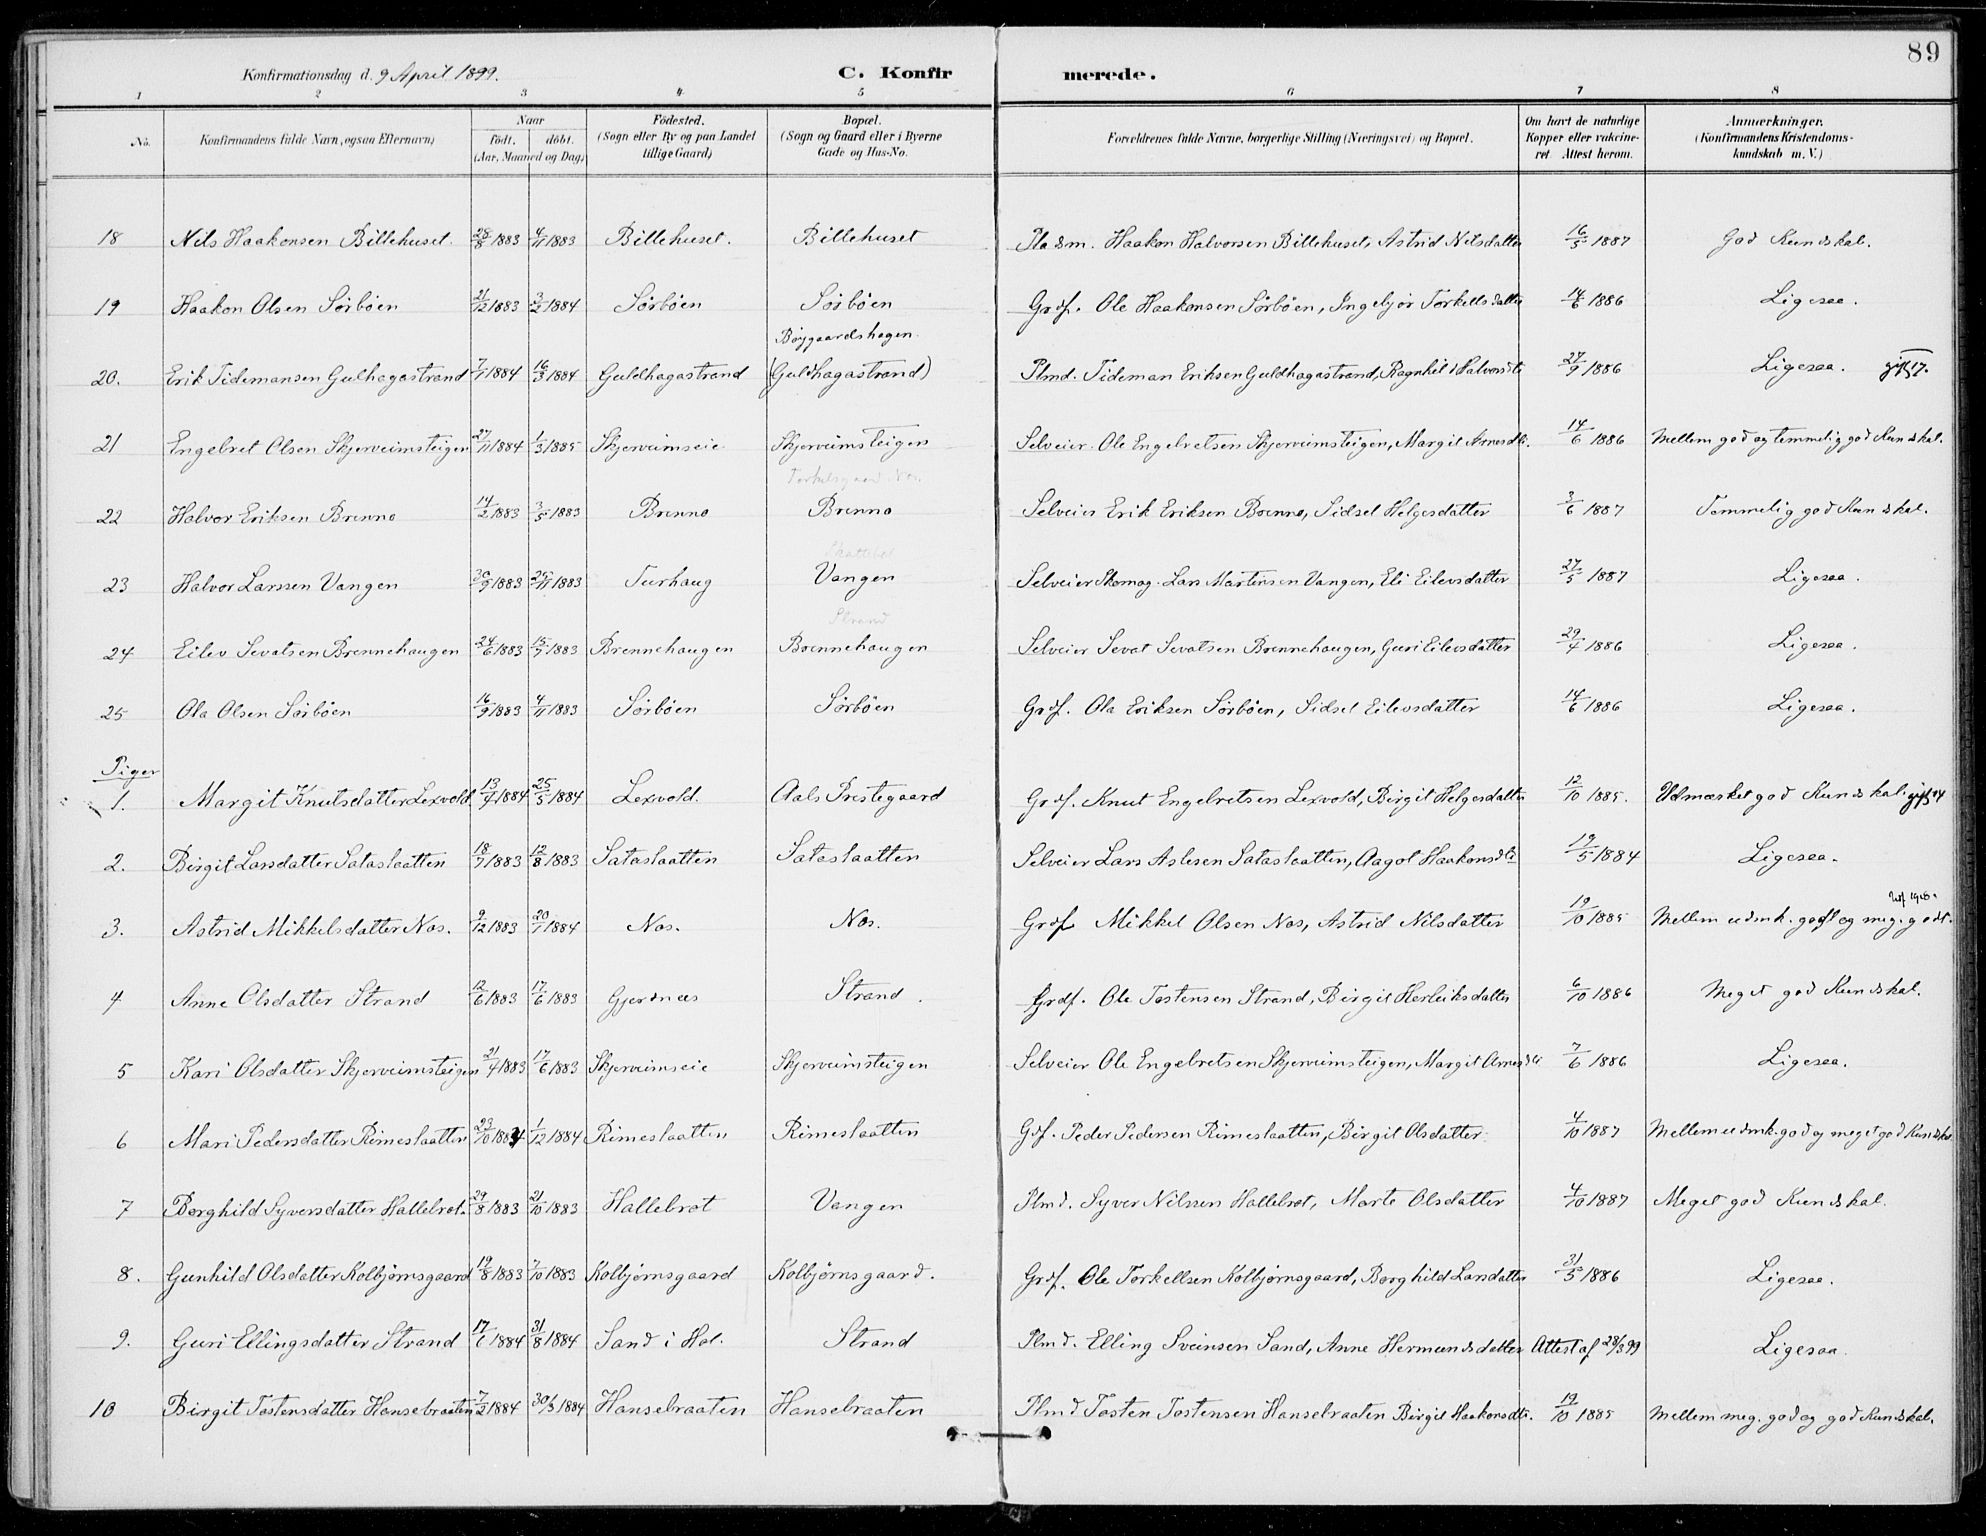 89
Konfirmationsdag d. 9 April 1899. C. Konfirmerede.
1 2 3 4 5 6 7 8
No. Konfirmandens fulde Navn, ogsaa Efternavn) Naar født. døbt. (Aar, Maaned og Dag) Fødested. (Sogn eller By og paa Landet tillige Gaard) Bopæl. (Sogn og Gaard eller i Byerne Gade og Hus-No. Forældrenes fulde Navne, borgerlige Stilling (Næringsvei) og Bopæl. Om havt de naturlige Kopper eller vakcineret. Attest herom. Anmærkninger. (Konfirmandens Kristendomskundskab m. V.)
18 Nils Haakonsen Billehuset. 28/8 1883 4/11 1883 Billehuset. Billehuset Pladsm. Haakon Halvorsen Billehuset, Astrid Nilsdatter 16/5 1887 God Kundskal.
19 Haakon Olsen Sørbøen 21/12 1883 3/2 1884 Sørbøen Sørbøen Grdf. Ole Haakonsen Sørbøen, Ingebjør Torkellsdatter 14/6 1886 Ligesaa.
Bøygaardshagen.
20. Erik Tidemansen Gulhagastrand 7/1 1884 16/3 1884 Guldhagastrand (Guldhagastrand) Plmd. Tideman Eriksen Guldhagastrand, Ragnhild Halvorsdtr 27/9 1886 Ligesaa. gift 17.
21 Engebret Olsen Skjerveimsteigen 27/11 1884 1/3 1885 Skjerveimseie Skjerveimsteigen Selveier. Ole Engebretsen Skjerveimsteigen, Margit Arnesdtr. 14/6 1886 Mellem god og temmelig god Kundskal.
Torkelsgaard Nes.
22 Halvor Eriksen Brenno 14/2 1883 3/5 1883 Brenno Brenno Selveier Erik Eriksen Brenno, Sidsel Helgesdatter 3/6 1887 Temmelig god Kundskal.
23 Halvor Larssen Vangen 30/9 1883 25/11 1883 Turhaug Vangen Selveier Skomag. Lars Martinsen Vangen, Eli Eilevsdatter 27/5 1887 Ligesaa.
Strand
24 Eilev Sevatsen Brennehaugen 24/6 1883 15/7 1883 Brennehaugen Brennehaugen Selveier Sevat Sevatsen Brennehaugen, Guri Eilevsdatter 29/4 1886 Ligesaa.
25 Ola Olsen Sørbøen 16/9 1883 4/11 1883 Sørbøen Sørbøen Grdf. Ola Eriksen Sørbøen, Sidsel Eilevsdatter 14/6 1886 Ligesaa.
Piger
1. Margit Knutsdatter Lexvold 13/4 1884 25/5 1884 Lexvold. Aals Prestegaard Grdf. Knut Engebretsen Lexvold, Birgit Helgesdatter 12/10 1885. Udmærket god Kundskal. gift 14
2. Birgit Larsdatter Sataslaatten 18/7 1883 12/8 1883 Sataslaatten Sataslaatten Selveier Lars Aslesen Sataslaatten, Aagot Haakonsdtr 19/5 1884 Ligesaa.
3. Astrid Mikkelsdatter Nos. 9/12 1883 20/1 1884 Nos. Nos. Grdf Mikkel Olsen Nos, Astrid Nilsdatter 19/10 1885 Mellem udmk. godt og meg. godt.
4 Anne Olsdatter Strand 12/6 1883 17/6 1883 Gjerdnes Strand. Grdf. Ole Tostensen Strand, Birgit Herleiksdatter 6/10 1886 Meget god Kundskal.
5 Kari Olsdatter Skjerveimsteigen 21/4 1883 17/6 1883 Skjerveimseie Skjerveimsteigen Selveier Ole Engebretsen Skjerveimsteigen, Margit Arnesdtr 7/6 1886 Ligesaa.
6 Mari Pedersdatter Rimeslaatten 23/10 1884 1/12 1884 Rimeslaatten Rimeslaatten Grdf. Peder Pedersen Rimeslaatten, Birgit Olsdatter 4/10 1887 Mellem udmk. god og meget god Kundskal
7 Borghild Syversdatter Hallebrot. 29/8 1883 21/10 1883 Hallebrot Vangen Plmd. Syver Nilssen Hallebrot, Marte Olsdatter 4/10 1887 Meget god Kundskal.
8. Gunhild Olsdatter Kolbjørnsgaard 19/8 1883 7/10 1883 Kolbjørnsgaard Kolbjørnsgaard. Grdf. Ole Torkellsen Kolbjørnsgaard, Borghild Larsdatter 31/5 1886 Ligesaa.
9. Guri Ellingsdatter Strand 17/6 1884 31/8 1884 Sand i Hol. Strand Plmd. Elling Sveinsen Sand, Anne Hermundsdatter Attest af 28/3 99 Ligesaa.
10 Birgit Tostensdatter Hansebraaten 7/2 1884 30/3 1884 Hansebraaten Hansebraaten Plmd Tosten Tostensen Hansebraaten Birgit Haakonsdtr. 19/10 1885 Mellem meg. god og god Kundskal.